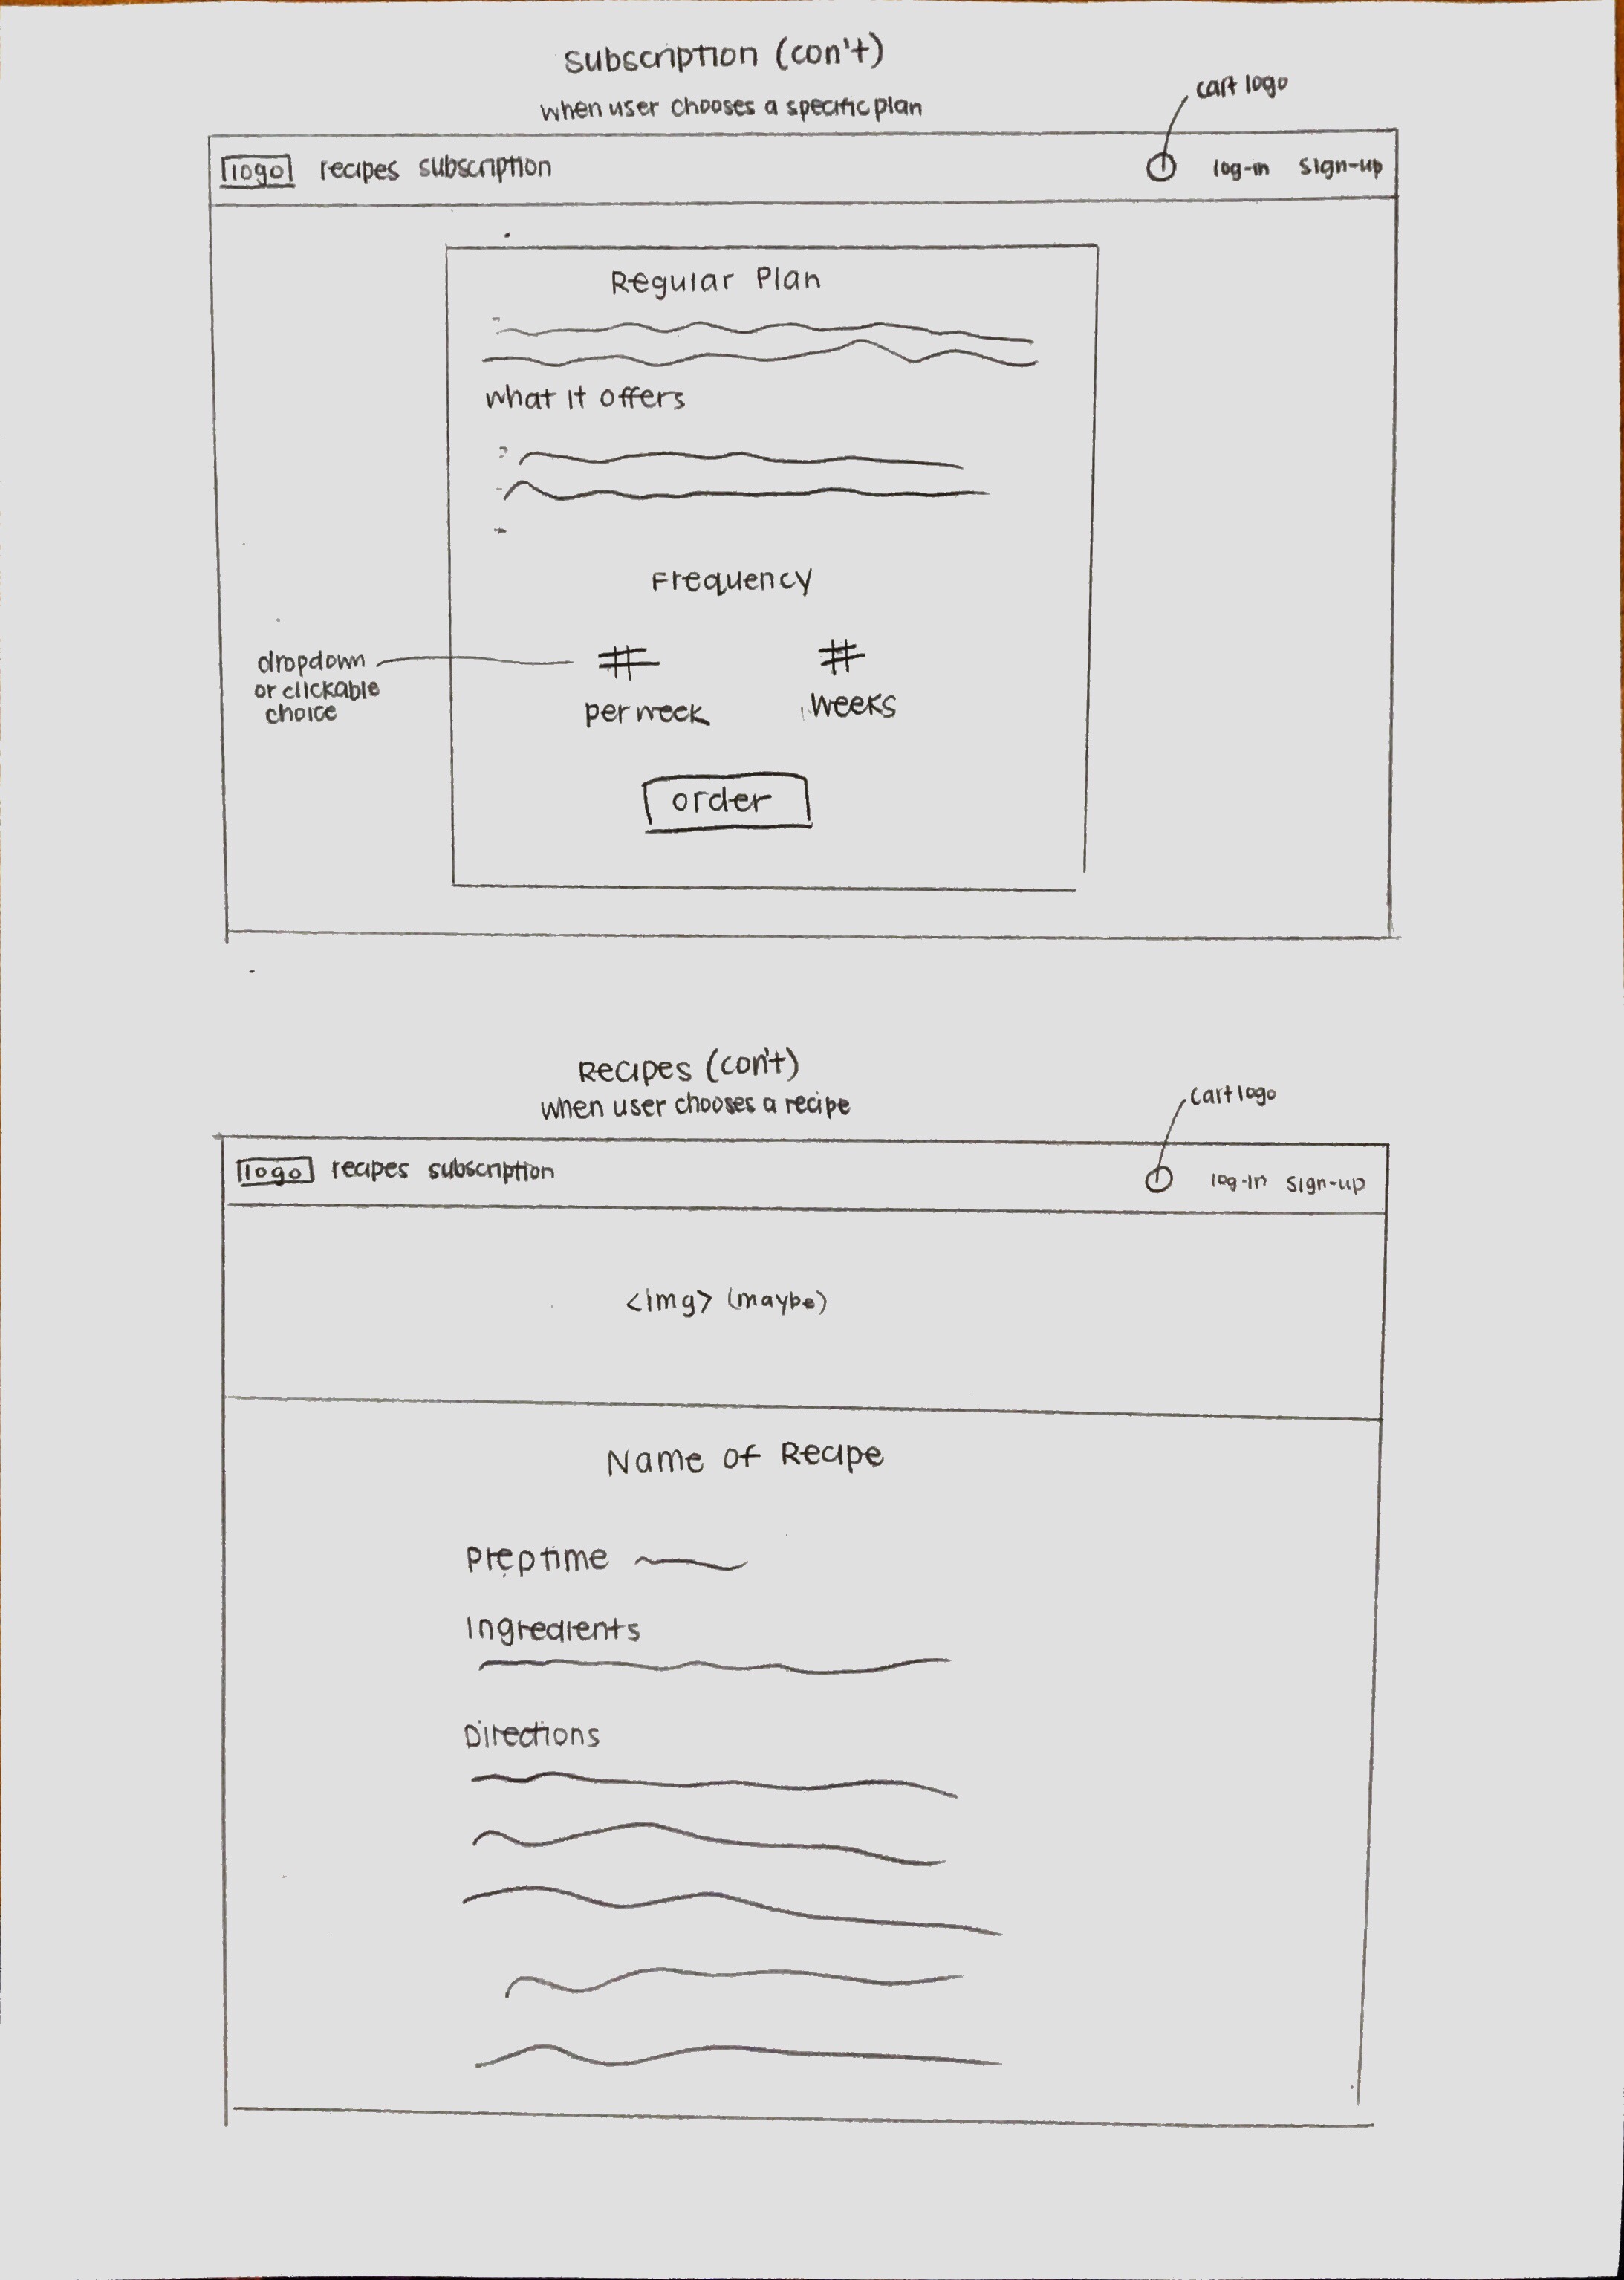 Subscription (con't)
when user chooses a specific plan
cart logo
logo recipes subscription log-in sign-up
Regular Plan
what it offers
Frequency
# #
dropdown
or clickable
choice
per week weeks
order
Recipes (con't)
when user chooses a recipe
cart logo
logo recipes subscription log-in sign-up
<img> (maybe)
Name of Recipe
Prep time
Ingredients
Directions